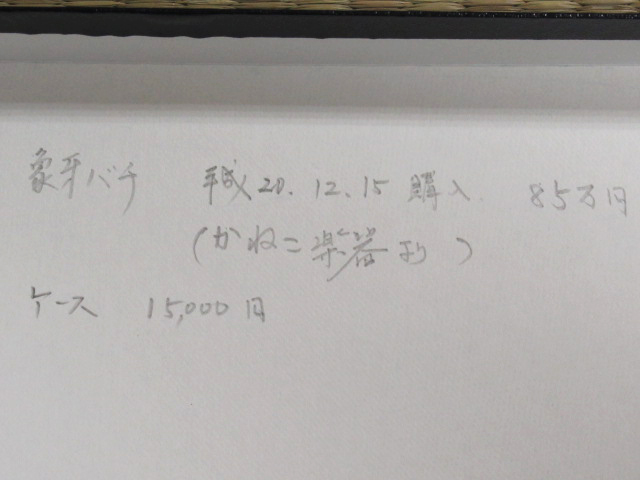 象牙バチ 平成20.12.15 購入 85万円
(かねこ楽器より)
ケース 15,000円